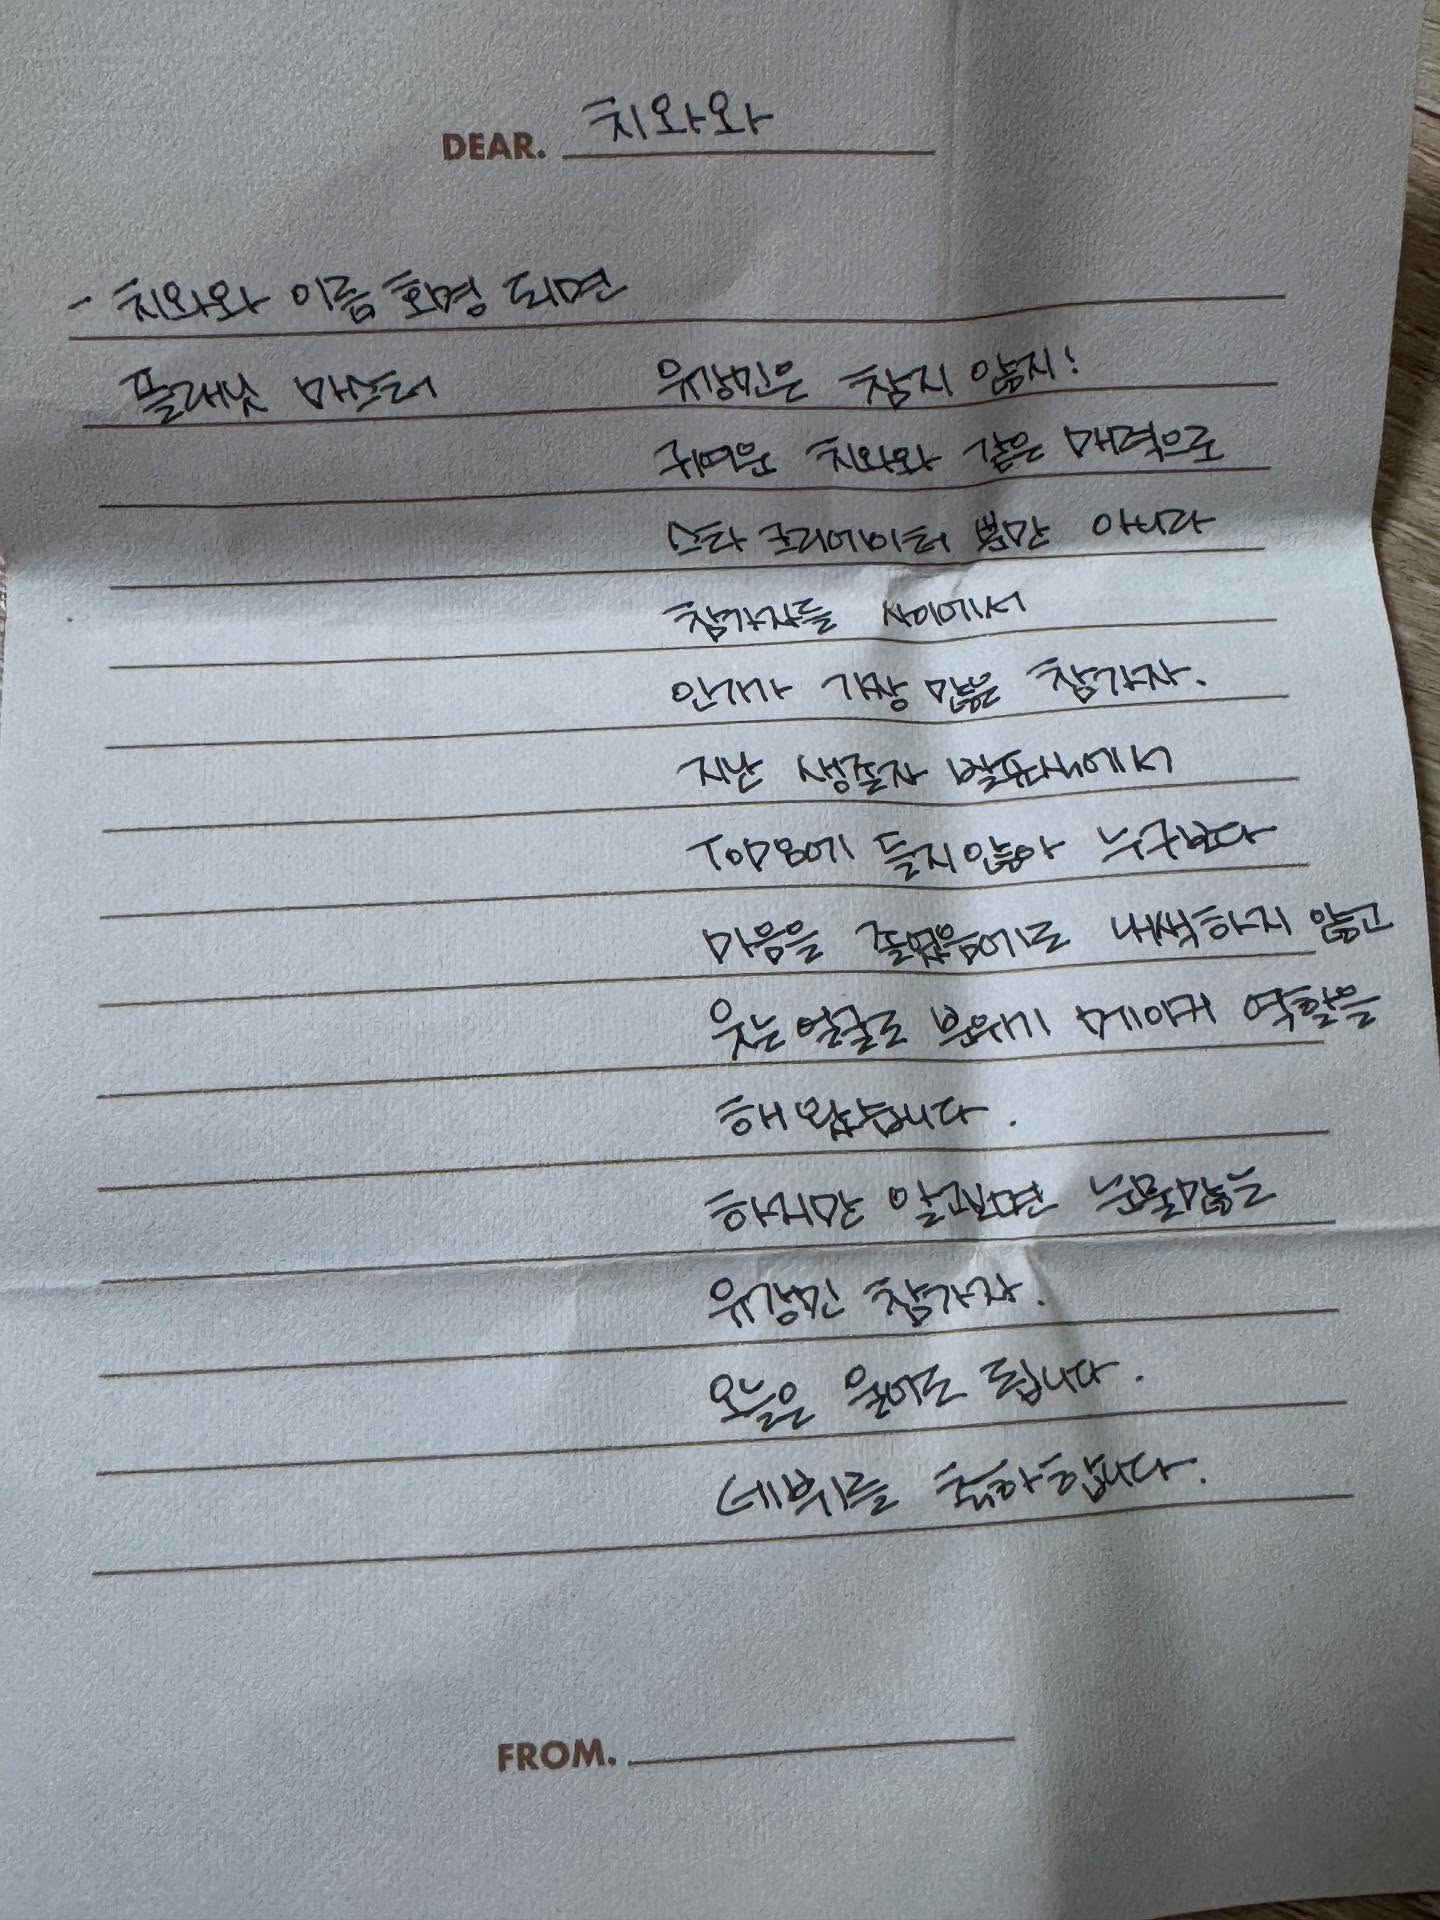 DEAR. 치와와
- 치와와 이름 호명 되면
플래닛 마스터 유강민은 참지 않지!
귀여운 치와와 같은 매력으로
스타 크리에이터 뿐만 아니라
참가자들 사이에서
인기가 가장 많은 참가자.
지난 생존자 발표식에서
TOP8에 들지 않아 누구보다
마음을 졸였음에도 내색하지 않고
웃는 얼굴로 분위기 메이커 역할을
해 왔습니다.
하지만 알고보면 눈물많은
유강민 참가자.
오늘은 울어도 됩니다.
데뷔를 축하합니다.
FROM.